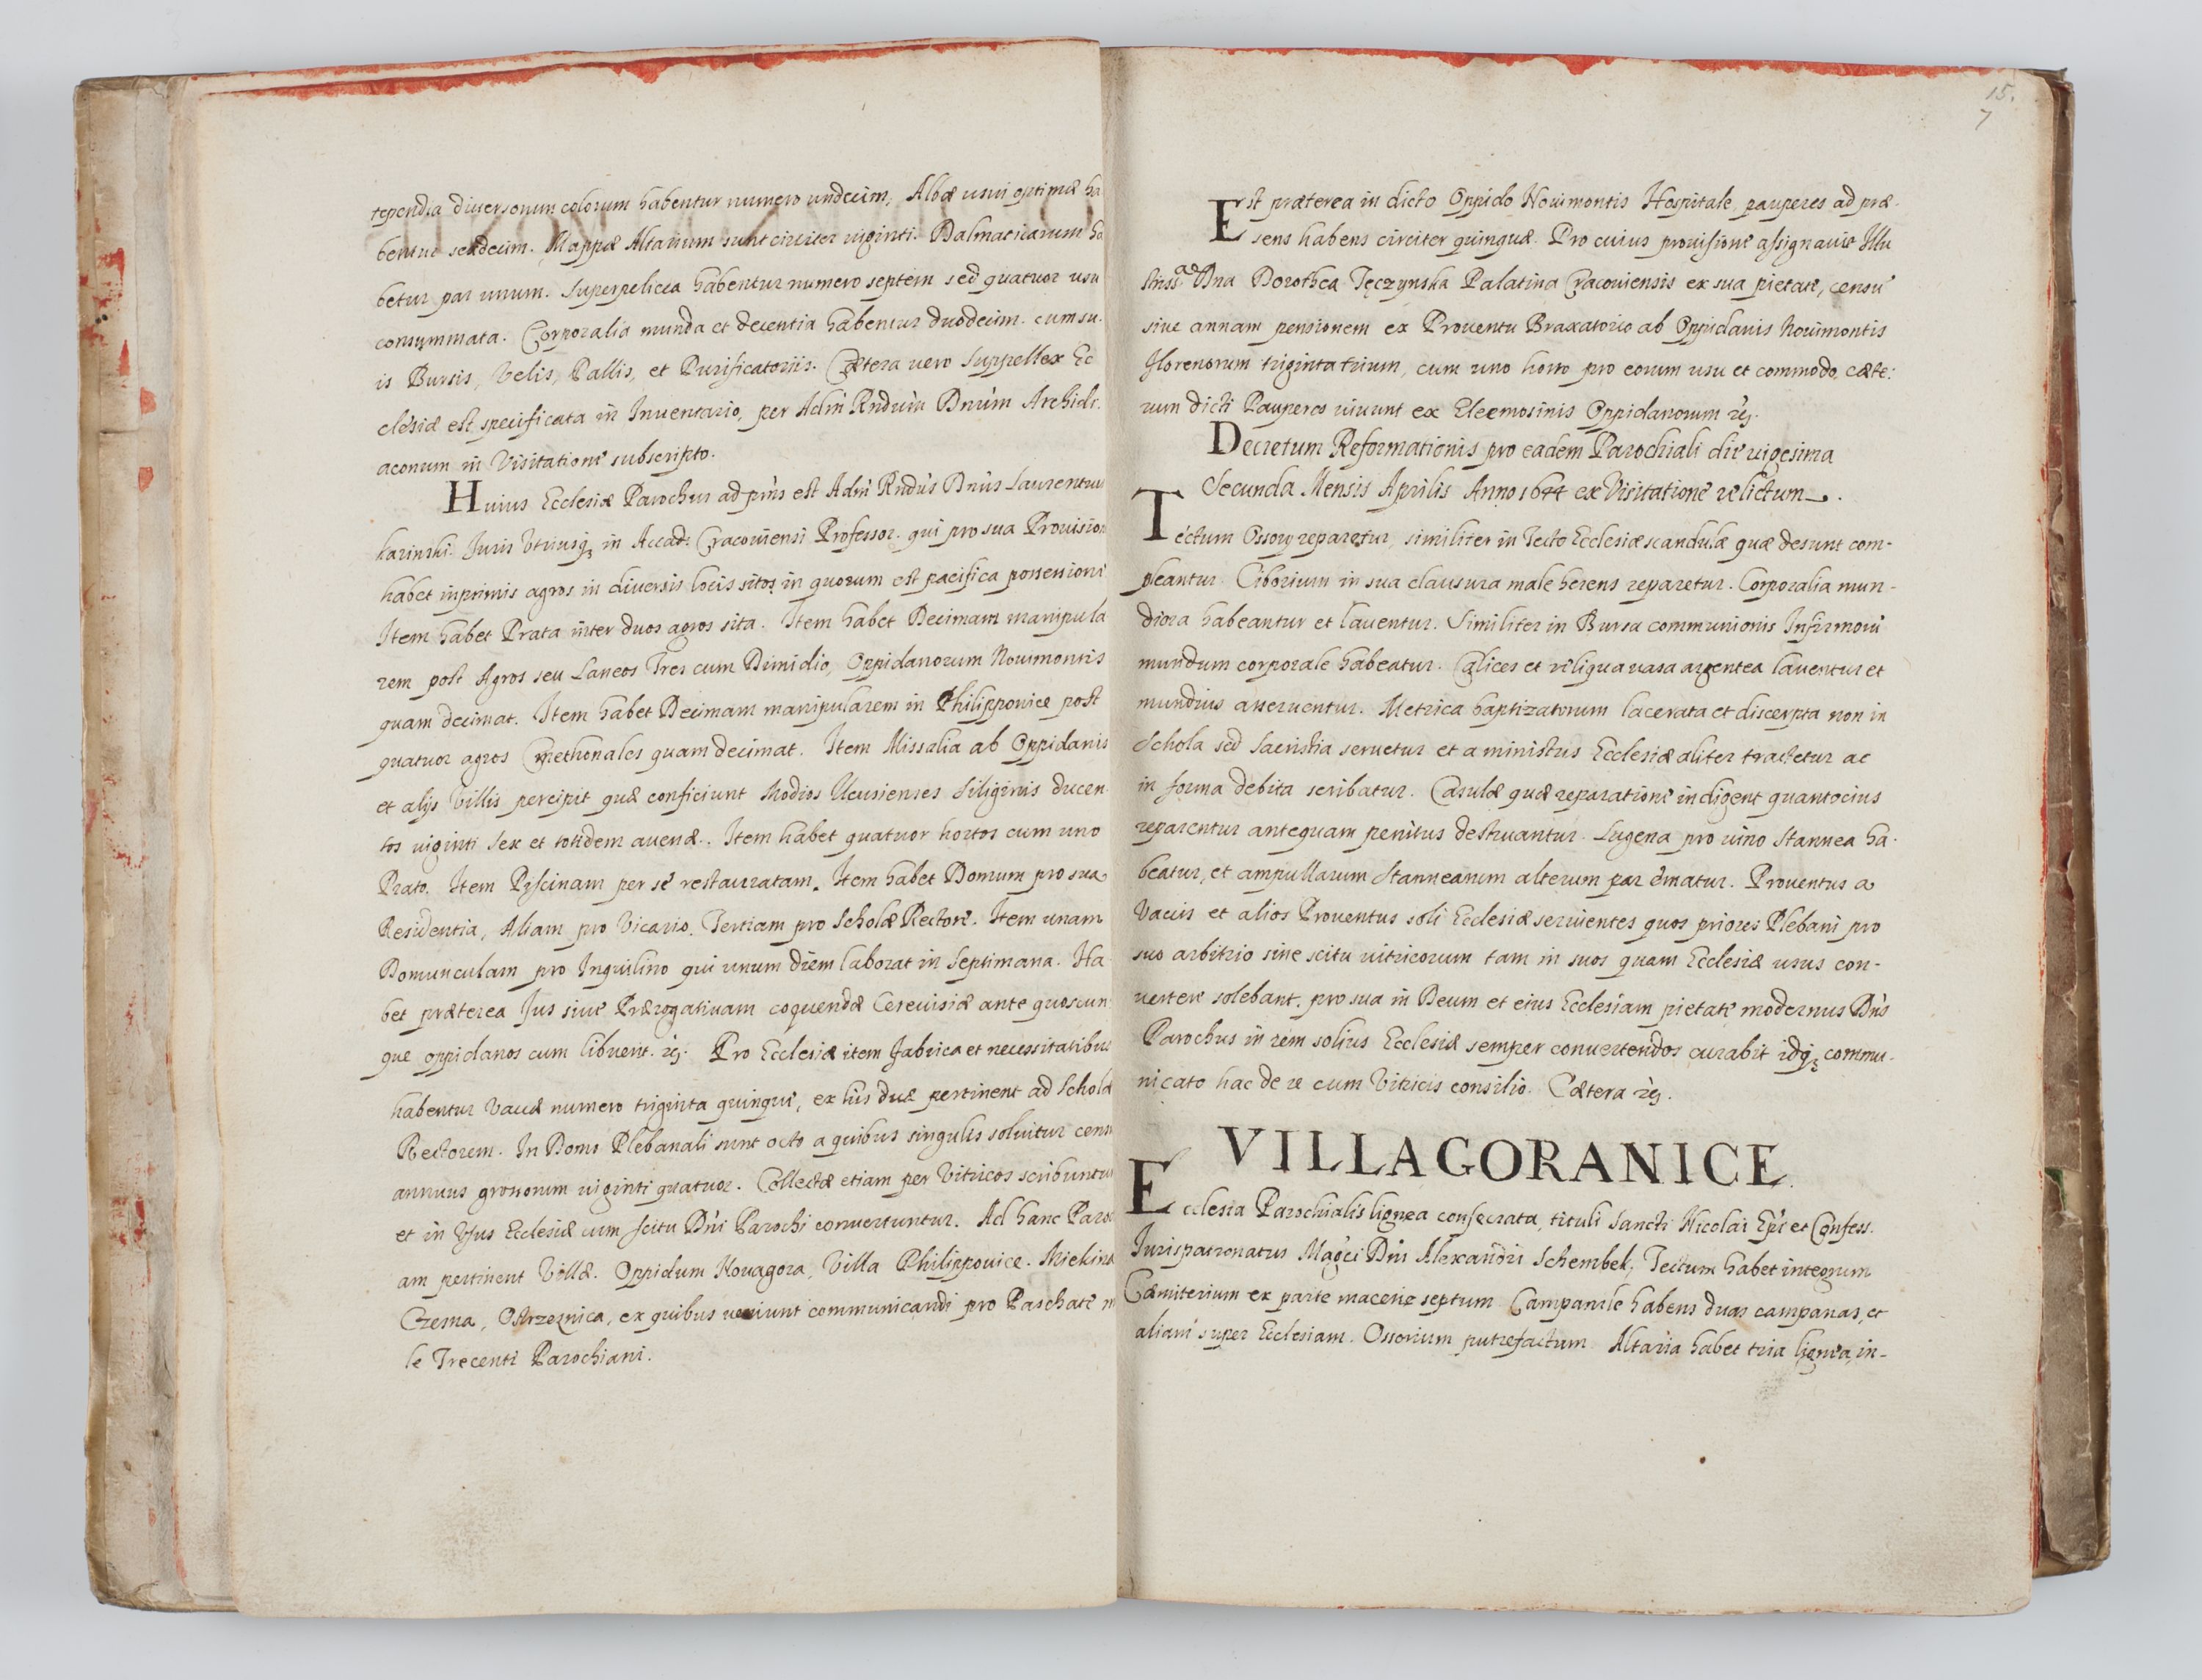 tependia diuersorum colorum habentur numero undecim, Albæ usui optimæ ha
bentur sexdecim. Mappæ Altarium sunt circiter uiginti. Dalmaticarum ha
betur par unum. Superpelicea habentur numero septem sed quatuor usu
consummata. Corporalia munda et decentia habentur duodecim. cum su-
is Bursis, Velis, Pallis, et Purificatoriis. Cætera uero Suppellex Ec
clesiæ est specificata in Inventario, per Adm Rndum Dnum Archidi-
aconum in Visitatione subscripto.
Huius Ecclesiæ Parochus ad pns est Adm Rndus Dnus Laurentius
karinski Iuris Vtriusq3 in Accad: Cracouiensi Professor. qui pro sua Prouision
habet inprimis agros in diuersis locis sitos in quorum est pacifica possessione
Item habet Prata inter duos agros sita. Item habet Decimam manipula
rem post Agros seu Laneos Tres cum Dimidio, Oppidanorum Nouimontis
quam decimat. Item habet Decimam manipularem in Philippouice post
quatuor agros Cmethonales quam decimat. Item Missalia ab Oppidanis
et alijs Villis percipit quæ conficiunt Modios Ilcusienses Siliginis ducen
tos uiginti sex et totidem auenæ. Item habet quatuor hortos cum uno
Prato. Item Piscinam per se restauratam. Item habet Domum pro sua
Residentia, Aliam pro Vicario. Tertiam pro Scholæ Rectore. Item unam
Domunculam pro Inquilino qui unum diem laborat in Septimana. Ha
bet præterea Ius siue Prærogatiuam coquendæ Cereuisiæ ante quoscun
que oppidanos cum libuent. Pro Ecclesiæ item fabrica et necessitatibus
habentur Vaccæ numero triginta quinque, ex his duæ pertinent ad Scholæ
Rectorem. In Domo Plebanali sunt octo a quibus singulis soluitur censu
annuus grossorum uiginti quatuor. Collectæ etiam per Vitricos scribuntur
et in Vsus Ecclesiæ cum scitu Dni Parochi conuertuntur. Ad hanc Paroc
am pertinent Villæ. Oppidum Nouagora, Villa Philippouice. Miekina
Czerna, Ostrzeznica, ex quibus ueniunt communicandi pro Paschate m
le Trecenti Parochiani.
15.
7
Est præterea in dicto Oppido Nouimontis Hospitale, pauperes ad præ-
sens habens circiter quinquæ. Pro cuius prouisione assignauit Illu
striss ae Dna Dorothea Tęczynska Palatina Cracouiensis ex sua pietate, censu
siue annam pensionem ex Prouentu Braxatorio ab Oppidanis Nouimontis
florenorum triginta trium, cum uno horto pro eorum usu et commodo, cæte:
rum dicti Pauperes uiuunt ex Eleemosinis Oppidanorum
Decretum Reformationis pro eadem Parochiali die uigesima
Secunda Mensis Aprilis Anno 1644 ex Visitatione relictum.
Tectum Ossory reparetur, similiter in Tecto Ecclesiæ scandulæ quæ desunt com-
pleantur. Ciborium in sua clausura male herens reparetur. Corporalia mun-
diora habeantur et lauentur. Similiter in Bursa communionis Infirmorū
mundum corporale habeatur. Calices et reliqua uasa argentea lauentur et
mundius asseruentur. Metrica baptizatorum lacerata et discerpta non in
Schola sed Sacristia seruetur et a ministris Ecclesiæ aliter tractetur ac
in forma debita scribatur. Casulæ quæ reparatione indigent quantocius
reparentur antequam penitus destruantur. Lagena pro uino Stannea ha-
beatur, et ampullarum Stannearum alterum par ematur. Prouentus a
Vaccis et alios Prouentus soli Ecclesiæ seruientes quos priores Plebani pro
suo arbitrio sine scitu uitricorum tam in suos quam Ecclesiæ usus con-
uertere solebant. pro sua in Deum et eius Ecclesiam pietate modernus Dns
Parochus in rem solius Ecclesiæ semper conuertendos curabit idq3 commu-
nicato hac de re cum Vitricis consilio. Cætera
VILLA GORANICE
Ecclesia Parochialis lignea consecrata, tituli Sancti Nicolai Epi et Confess.
Iurispatronatus Magci Dni Alexandri Schembek, Tectum habet integrum
Cæmiterium ex parte macerie septum. Campanile habens duas campanas, et
aliam super Ecclesiam. Ossorium putrefactum. Altaria habet tria lignea, in-